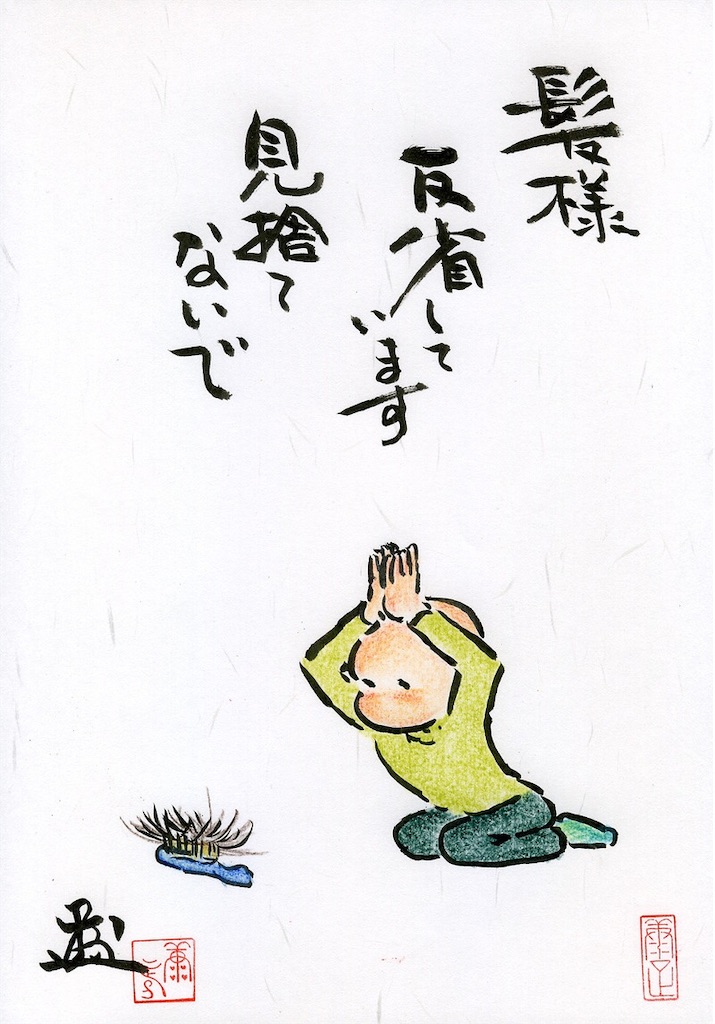 髪様
反省して
います
見捨て
ないで